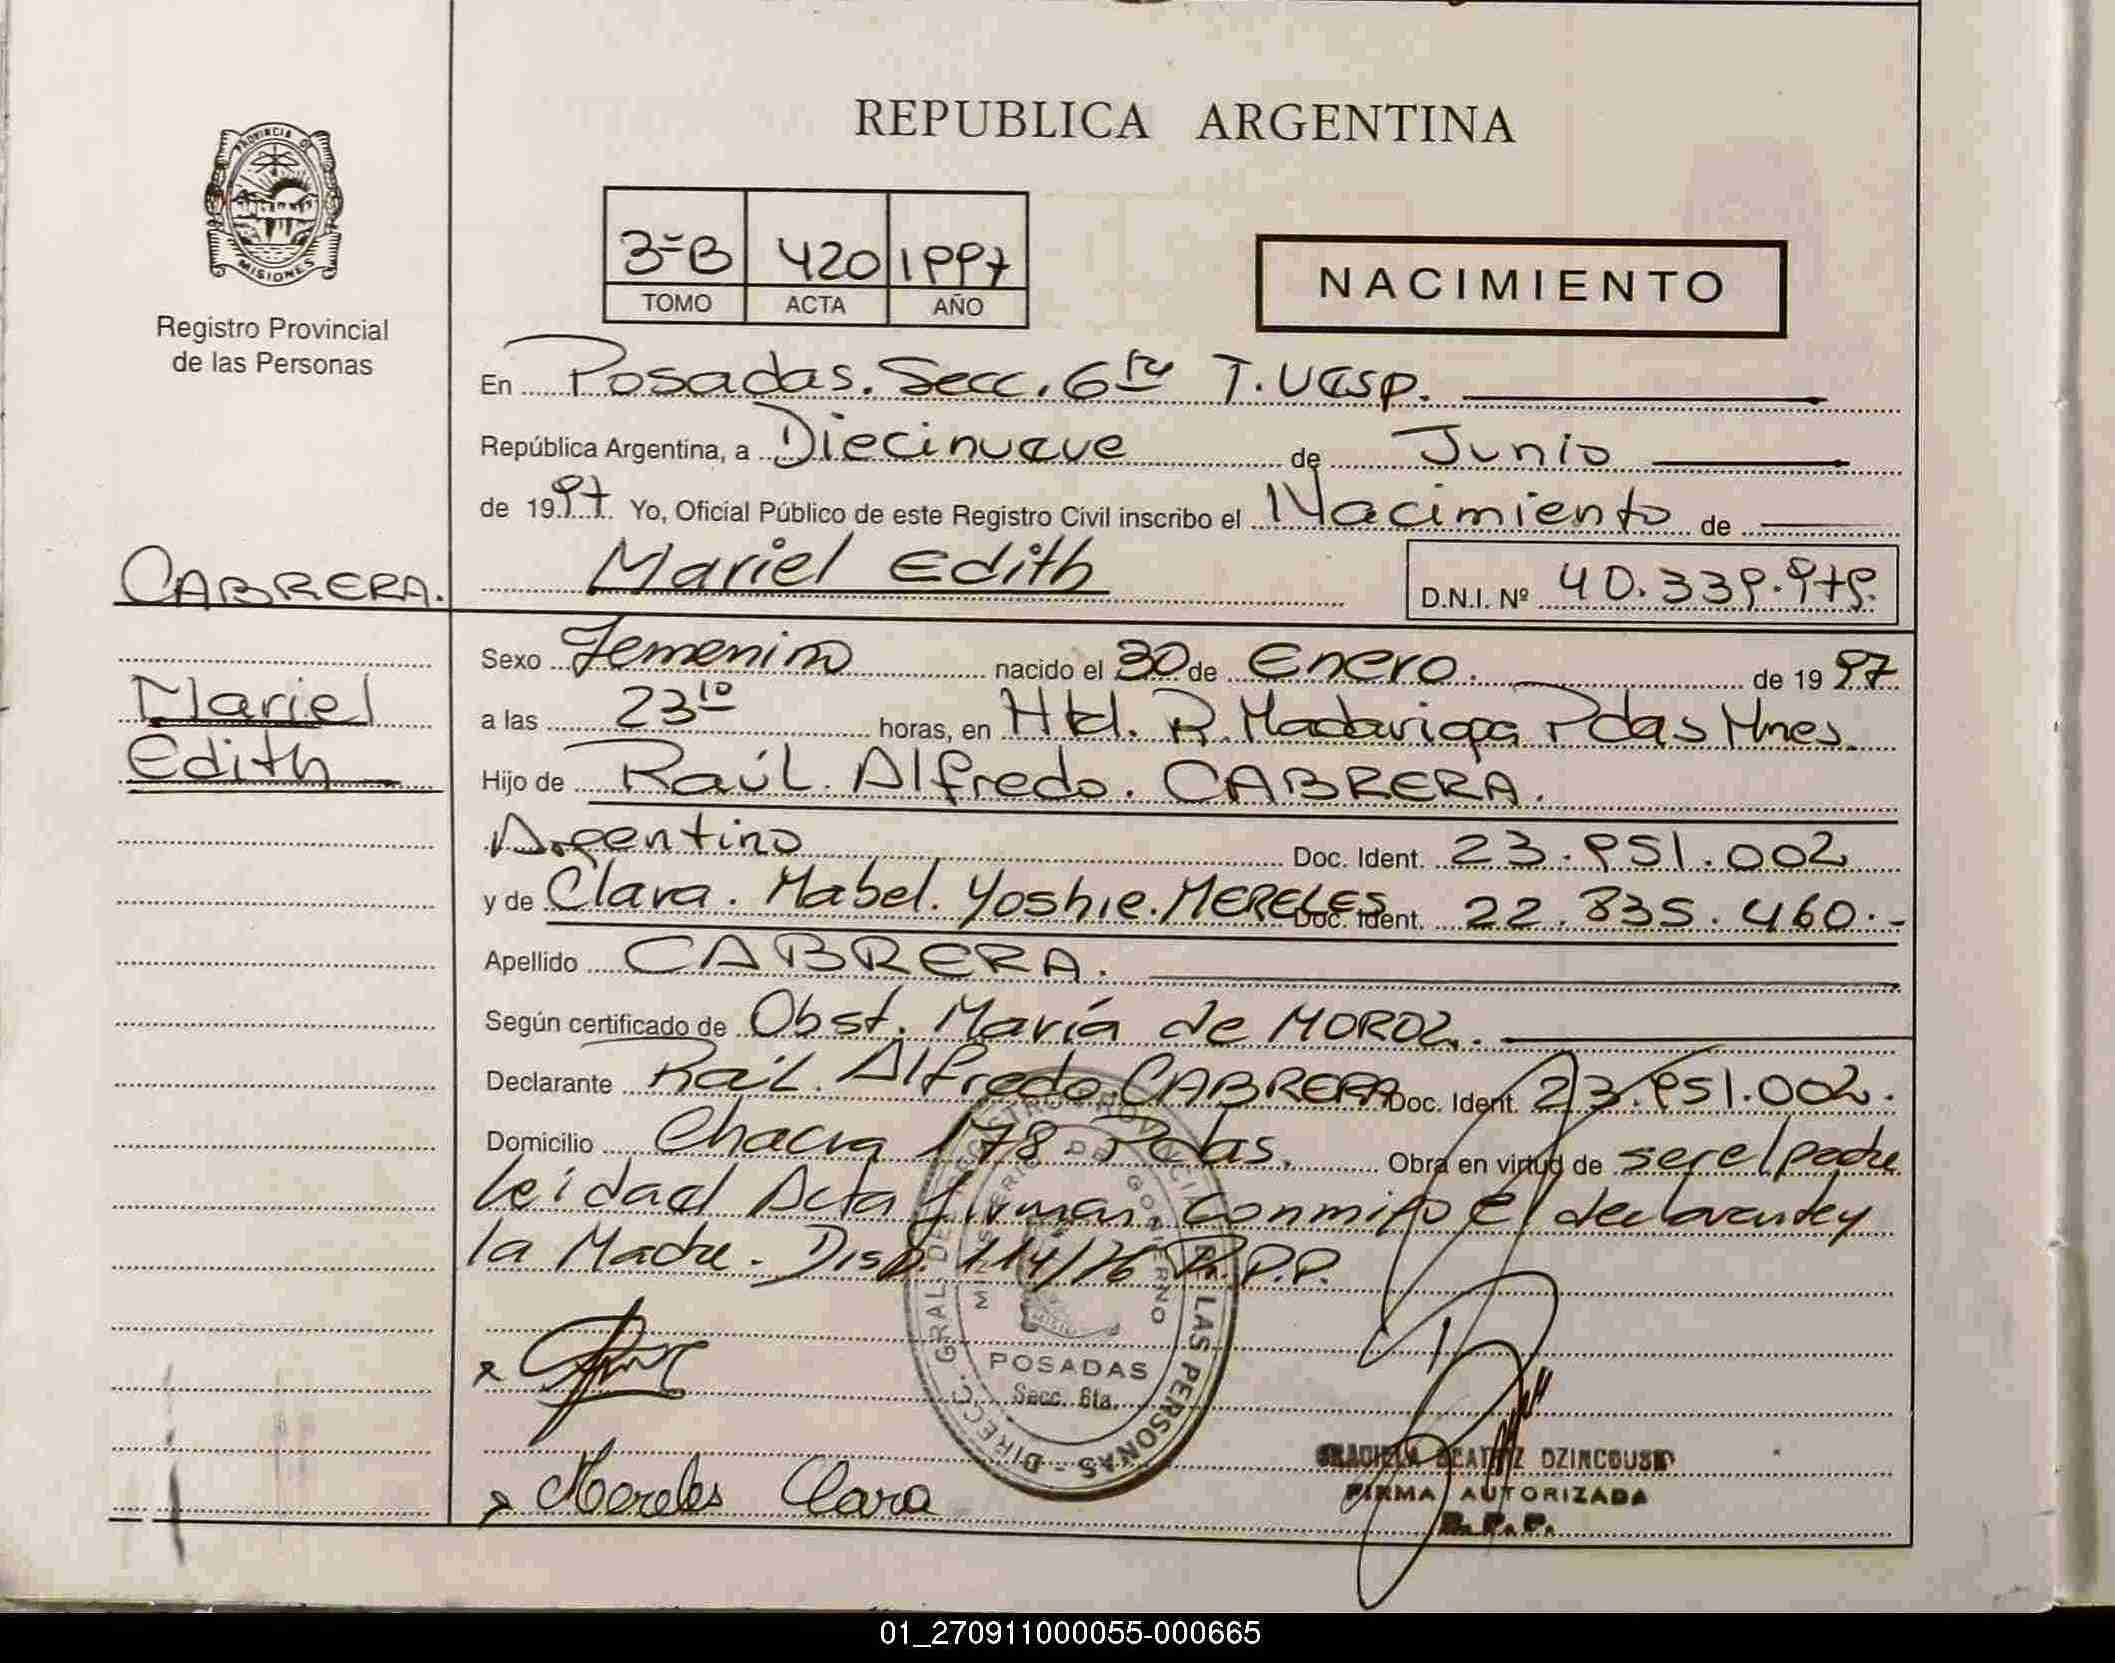 REPUBLICA ARGENTINA
PROVINCIA DE
MISIONES
Registro Provincial
de las Personas
3ºB 420 1997
TOMO ACTA AÑO
NACIMIENTO
En Posadas. Secc. 6ta T. Vesp.
República Argentina, a Diecinueve de Junio
de 1997 Yo, Oficial Público de este Registro Civil inscribo el Nacimiento de
CABRERA.
Mariel Edith
D.N.I. Nº 40.339.979.
Mariel
Edith
Sexo Femenino nacido el 30 de Enero. de 1997
a las 23 10 horas, en Htal. R. Madariaga Pdas Mnes.
Hijo de Raúl. Alfredo. CABRERA.
Argentino Doc. Ident. 23.951.002
y de Clara. Mabel. Yoshie. MERELES Doc. Ident. 22.835.460.-
Apellido CABRERA.
Según certificado de Obst. María de MOROZ.
Declarante Raúl. Alfredo. CABRERA Doc. Ident. 23.951.002.
Domicilio Chacra 178 Pdas. Obra en virtud de ser el padre
leida el Acta firman conmigo el declarante y
la Madre. Disp. 114/76 R.P.P.
DIRECC. GRAL. DEL REGISTRO PROVINCIAL DE LAS PERSONAS
MINISTERIO DE GOBIERNO
POSADAS
Secc. 6ta.
x
x Mereles Clara
GRACIELA BEATRIZ
FIRMA AUTORIZADA
R. P. P.
01_270911000055-000665